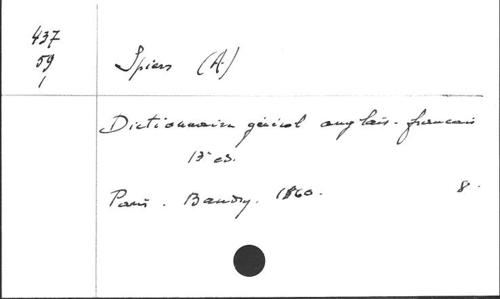 437
59
1
Spiers (A.)
Dictionnaire général anglais-français
13e ed.
Paris. Baudry. 1860. 8.